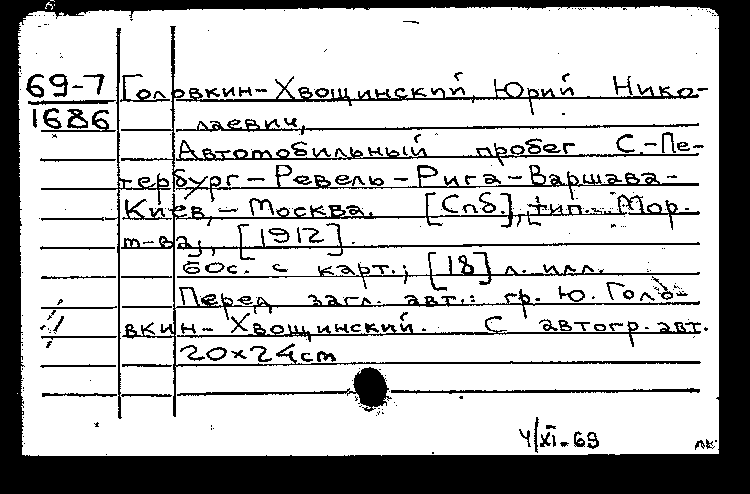 69-7 Головкин-Хвощинский, Юрий Нико-
1686 лаевич,
Автомобильный пробег С.-Пе-
тербург-Ревель-Рига-Варшава-
Киев,-Москва. [Спб.], [тип. Мор.
т-ва], [1912].
60с. с карт.; [18] л. илл.
Перед загл. авт.: гр. Ю. Голо-
вкин-Хвощинский. С автогр. авт.
20x24cm
4/XI-69